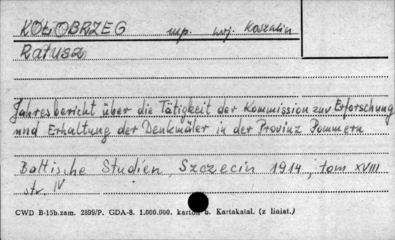 KOŁOBRZEG mp. woj. Koszalin
Ratusz
Jahresbericht über die Tätigkeit der Kommission zur Erforschung
und Erhaltung der Denkmäler in der Provinz Pommern
Baltische Studien, Szczecin 1914, tom XVIII
str. IV
CWD B-15b.zam. 2899/P. GDA-8. 1.000.000. karton b. Kartakatal. (z liniat.)